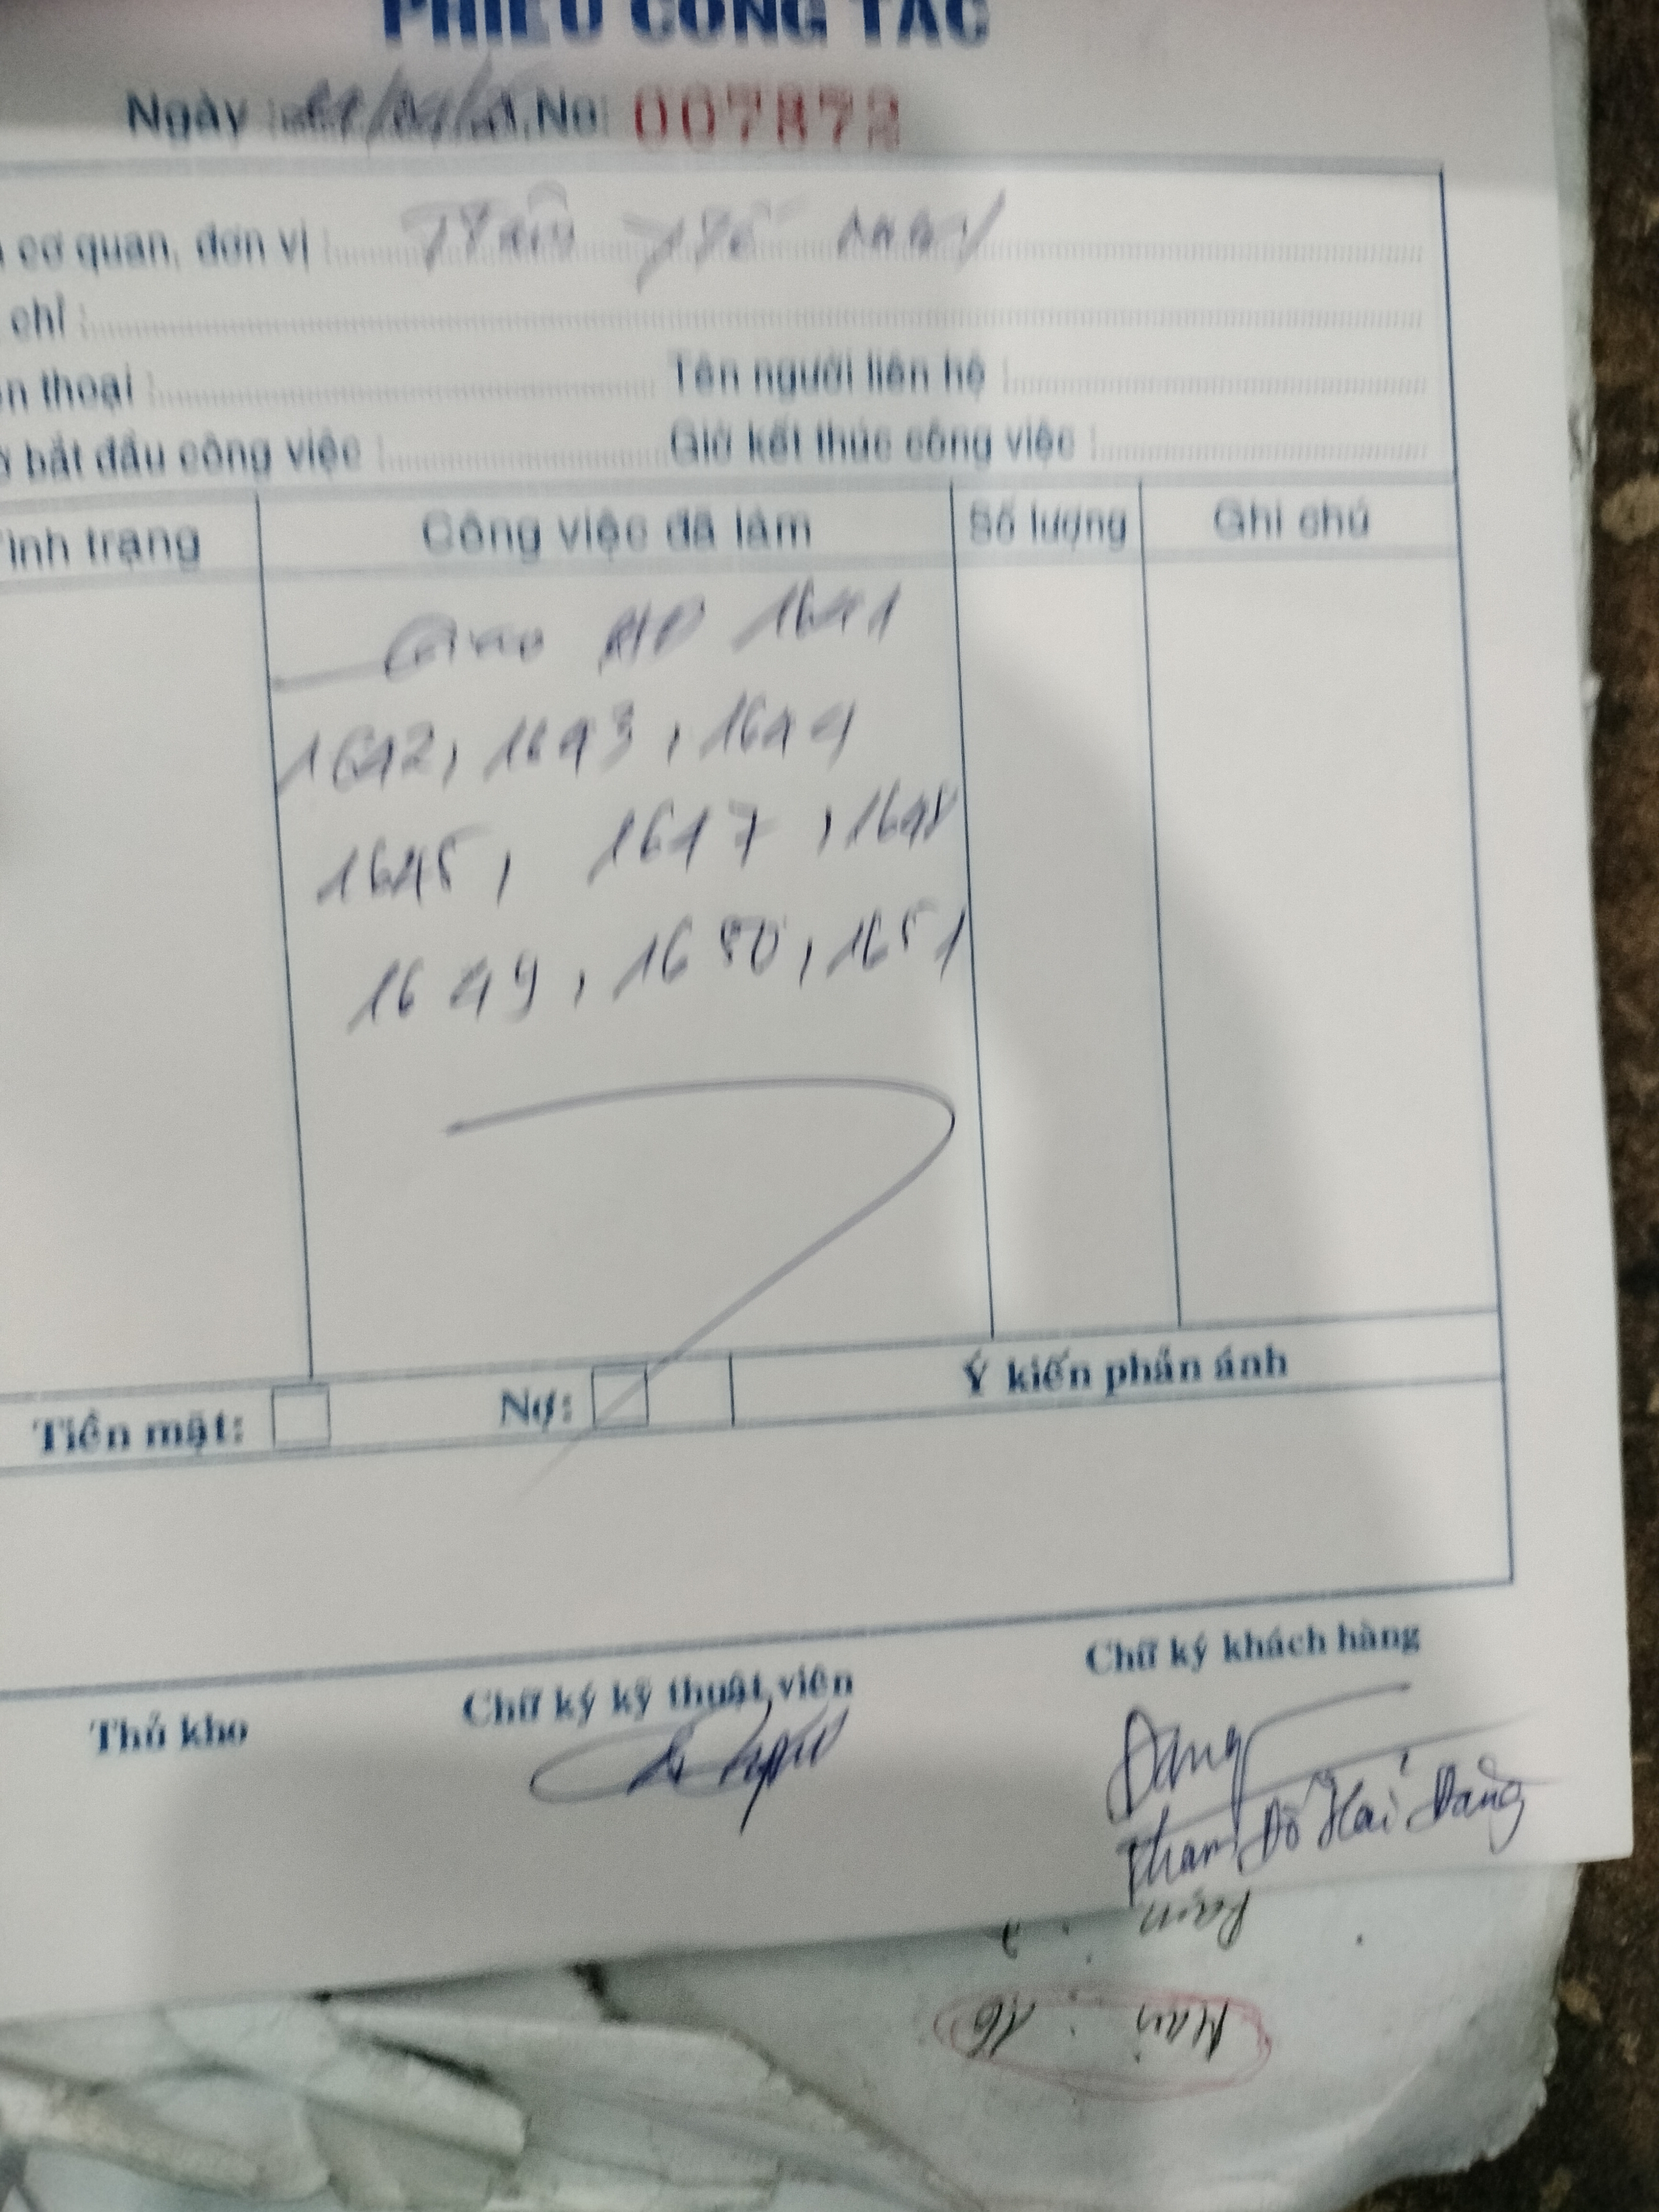 PHIẾU CÔNG TÁC
Ngày No: 007872
cơ quan, đơn vị :
chỉ :
n thoại : Tên người liên hệ :
bắt đầu công việc : Giờ kết thúc công việc :
ình trạng Công việc đã làm Số lượng Ghi chú
Giao HĐ 1641
1642, 1643, 1644
1645, 1647, 1648
1649, 1650, 1651
Tiền mặt: Nợ: Ý kiến phản ánh
Thủ kho Chữ ký kỹ thuật viên Chữ ký khách hàng
Đăng
Phạm Đỗ Hải Đăng